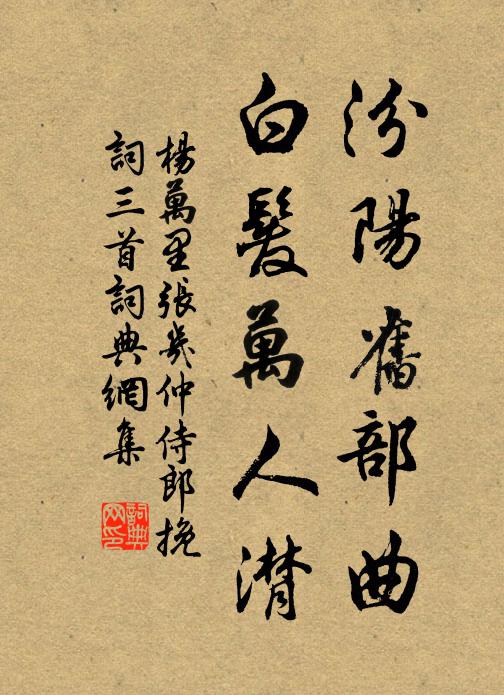 汾陽舊部曲
白髮萬人潸
楊萬里張幾仲侍郎挽
詞三首詞典網集
詞典
网印